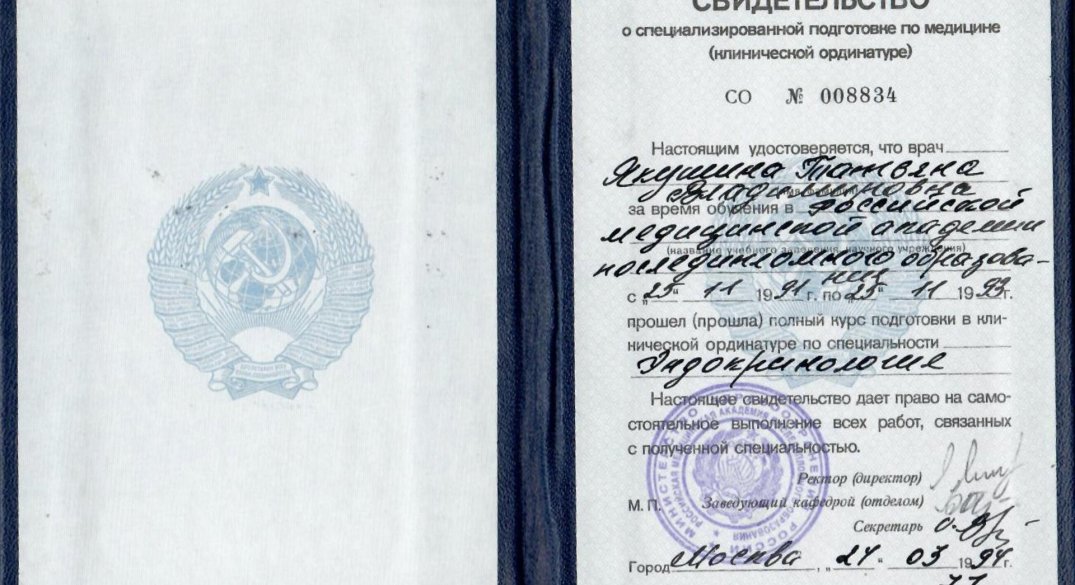 СВИДЕТЕЛЬСТВО
о специализированной подготовке по медицине
(клинической ординатуре)
СО № 008834
Настоящим удостоверяется, что врач
Якушина Татьяна
Владимировна
за время обучения в Российской
медицинской академии
(название учебного заведения, научного учреждения)
последипломного образова-
ния
с „25“ 11 1991 г. по „25“ 11 1993 г.
прошел (прошла) полный курс подготовки в кли-
нической ординатуре по специальности
Эндокринология
Настоящее свидетельство дает право на само-
стоятельное выполнение всех работ, связанных
с полученной специальностью.
Ректор (директор)
М. П. Заведующий кафедрой (отделом)
Секретарь
Город Москва, „24“ 03 1994 г.